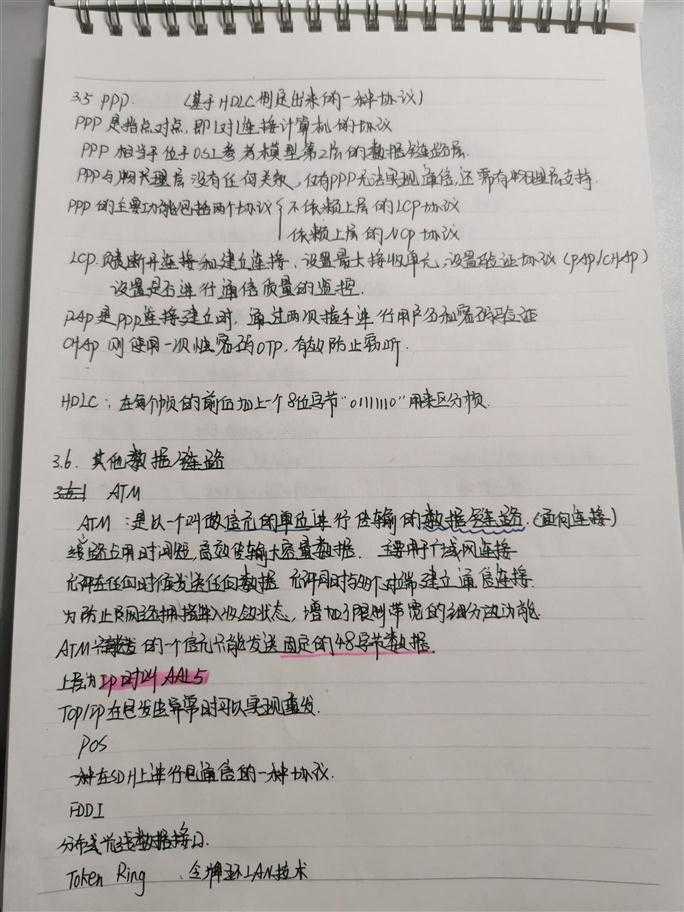 3.5 PPP. (基于HDLC制定出来的一种协议)
PPP是指点对点,即1对1连接计算机的协议
PPP相当于位于OSI参考模型第2层的数据链路层.
PPP与物理层没有任何关系,仅有PPP无法实现通信,还需有物理层支持.
PPP的主要功能包括两个协议 不依赖上层的LCP协议
依赖上层的NCP协议
LCP负责断开连接和建立连接、设置最大接收单元、设置验证协议(PAP/CHAP)
设置是否进行通信质量的监控.
PAP是PPP连接建立时,通过两次握手进行用户名和密码验证
CHAP则使用一次性密码OTP,有效防止窃听.
HDLC:在每个帧的前后加上一个8位字节"01111110"用来区分帧.
3.6. 其他数据链路
ATM
ATM:是以一个叫做信元的单位进行传输的数据链路.(面向连接)
线路占用时间短,高效传输大容量数据. 主要用于广域网连接
允许在任何时候发送任何数据 允许同时与多个对端建立通信连接
为防止网络拥挤 收敛状态,增加了限制带宽的细分功能
ATM 的一个信元只能发送固定的48字节数据.
上层为IP时叫AAL5
TCP/IP在包发生异常时可以实现重发.
POS
一种在SDH上进行包通信的一种协议.
FDDI
分布式光纤数据接口.
Token Ring 、令牌环LAN技术